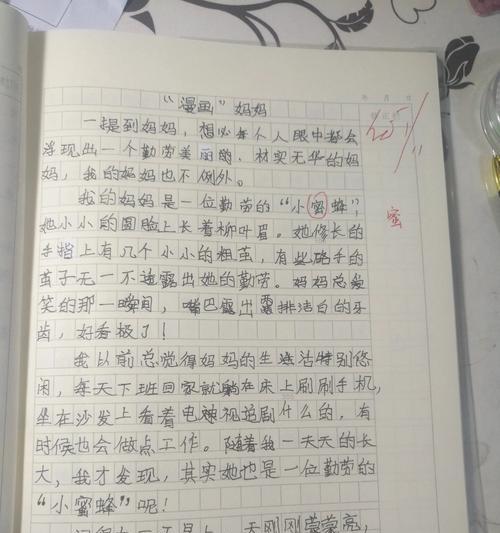 年 月 日
“漫画”妈妈
一提到妈妈，想必每个人眼中都会
浮现出一个勤劳美丽的、材实无华的妈
妈，我的妈妈也不例外。
我的妈妈是一位勤劳的“小蜜蜂”，
蜜
她小小的圆脸上长着柳叶眉。她修长的
手指上有几个小小的粗茧，有些硌手的
茧子无一不透露出她的勤劳。妈妈总爱
笑的那一瞬间，嘴巴露出排洁白的牙
齿，好看极了！
我以前总觉得妈妈的生活特别悠
闲，每天下班回家就躺在床上刷刷手机，
坐在沙发上看着电视追剧什么的，有
时候也会做点工作。随着我一天天的长
大，我才发现，其实她也是一位勤劳的
“小蜜蜂”呢！
天刚刚蒙蒙亮，